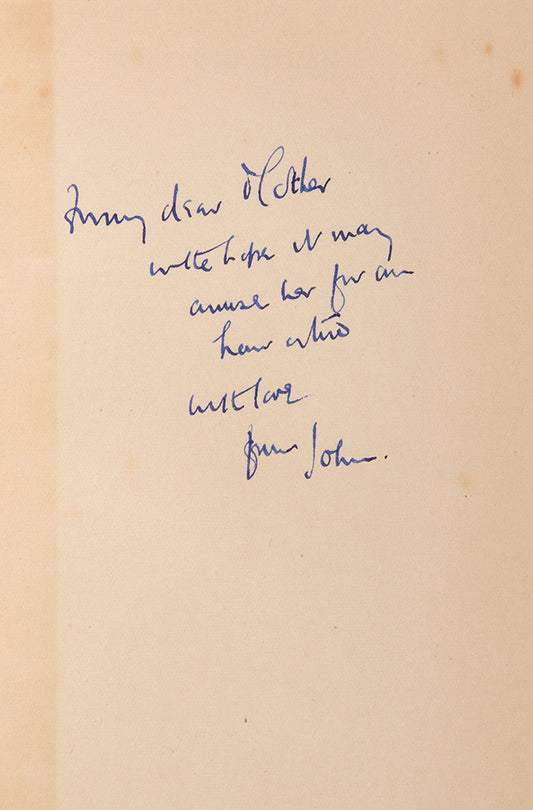 For my dear Mother
with hope it may
amuse her for an
hour or two
with love
from John.